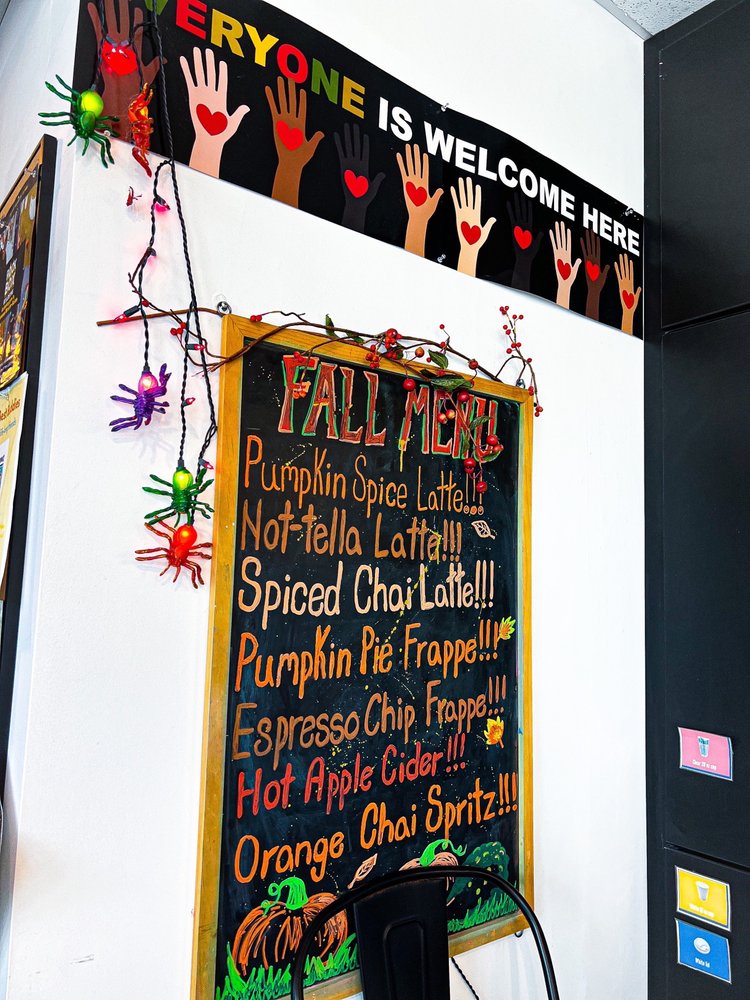 VERYONE IS WELCOME HERE
FALL MENU
Pumpkin Spice Latte!!!
Not-tella Latte!!!
Spiced Chai Latte!!!
Pumpkin Pie Frappe!!!
Espresso Chip Frappe!!!
Hot Apple Cider!!!
Orange Chai Spritz!!!